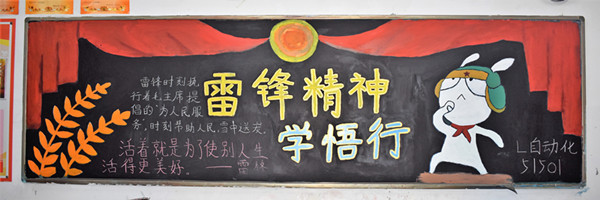 雷锋时刻执
行着毛主席提
倡的"为人民服
务",时刻帮助人民,雪中送炭
活着就是为了使别人生
活得更美好.——雷锋
雷锋精神
学悟行
L自动化
51501